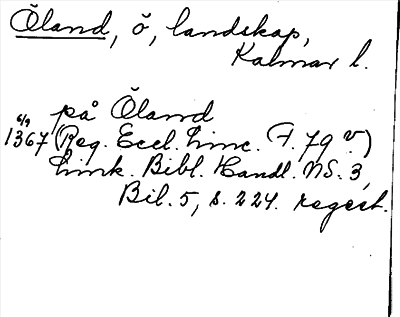 Öland, ö, landskap,
Kalmar l.
på Öland
6/9
1367 (Reg. Eccl. Linc. F. 79 v.)
Link. Bibl. Handl. NS. 3,
Bil. 5, s. 224. regest.